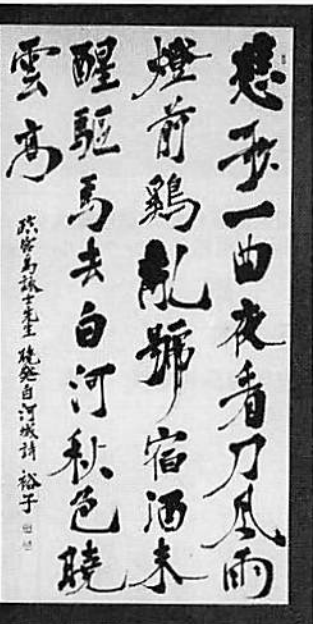 悲歌一曲夜看刀風雨
燈前鷄亂號宿酒未
醒驅馬去白河秋色曉
雲高
先生 曉発白河城詩 裕子